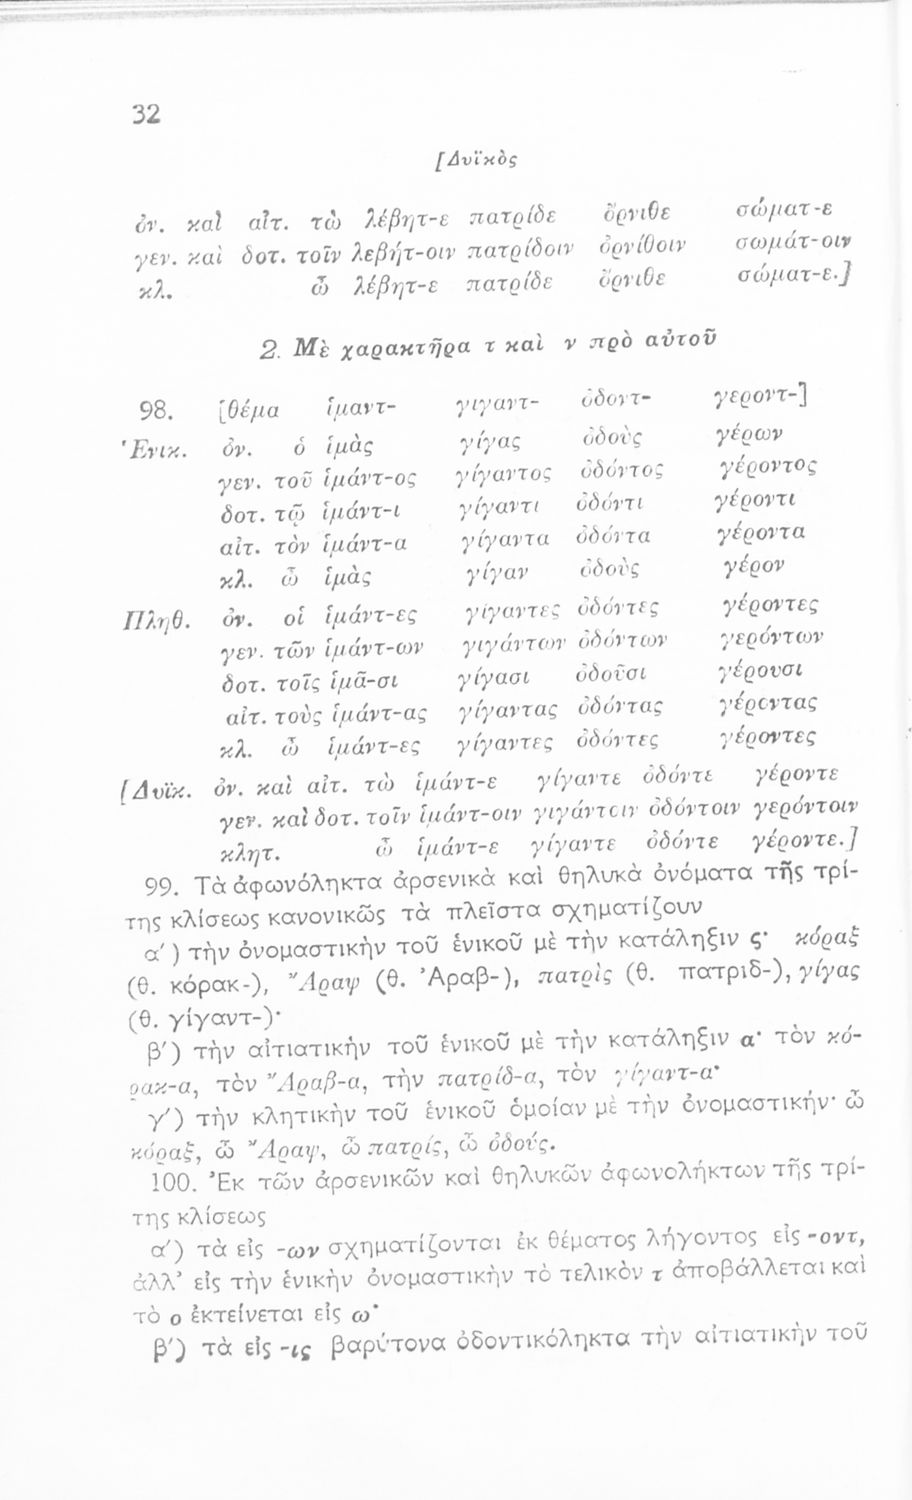 32
[Δυϊκὸς
ὀν. καὶ αἰτ. τὼ λέβητ-ε πατρίδε ὄρνιθε σώματ-ε
γεν. καὶ δοτ. τοῖν λεβήτ-οιν πατρίδοιν ὀρνίθοιν σωμάτ-οιν
κλ. ὦ λέβητ-ε πατρίδε ὄρνιθε σώματ-ε.]
2. Μὲ χαρακτῆρα τ καὶ ν πρὸ αὐτοῦ
98. [θέμα ἱμαντ- γιγαντ- ὀδοντ- γεροντ-]
Ἑνικ. ὀν. ὁ ἱμὰς γίγας ὀδοὺς γέρων
γεν. τοῦ ἱμάντ-ος γίγαντος ὀδόντος γέροντος
δοτ. τῷ ἱμάντ-ι γίγαντι ὀδόντι γέροντι
αἰτ. τὸν ἱμάντ-α γίγαντα ὀδόντα γέροντα
κλ. ὦ ἱμὰς γίγαν ὀδοὺς γέρον
Πληθ. ὀν. οἱ ἱμάντ-ες γίγαντες ὀδόντες γέροντες
γεν. τῶν ἱμάντ-ων γιγάντων ὀδόντων γερόντων
δοτ. τοῖς ἱμᾶ-σι γίγασι ὀδοῦσι γέρουσι
αἰτ. τοὺς ἱμάντ-ας γίγαντας ὀδόντας γέροντας
κλ. ὦ ἱμάντ-ες γίγαντες ὀδόντες γέροντες
[Δυϊκ. ὀν. καὶ αἰτ. τὼ ἱμάντ-ε γίγαντε ὀδόντε γέροντε
γεν. καὶ δοτ. τοῖν ἱμάντ-οιν γιγάντοιν ὀδόντοιν γερόντοιν
κλητ. ὦ ἱμάντ-ε γίγαντε ὀδόντε γέροντε.]
99. Τὰ ἀφωνόληκτα ἀρσενικὰ καὶ θηλυκὰ ὀνόματα τῆς τρί-
της κλίσεως κανονικῶς τὰ πλεῖστα σχηματίζουν
α΄) τὴν ὀνομαστικὴν τοῦ ἑνικοῦ μὲ τὴν κατάληξιν ς· κόραξ
(θ. κόρακ-), Ἄραψ (θ. Ἀραβ-), πατρὶς (θ. πατριδ-), γίγας
(θ. γίγαντ-)·
β΄) τὴν αἰτιατικὴν τοῦ ἑνικοῦ μὲ τὴν κατάληξιν α· τὸν κό-
ρακ-α, τὸν Ἄραβ-α, τὴν πατρίδ-α, τὸν γίγαντ-α·
γ΄) τὴν κλητικὴν τοῦ ἑνικοῦ ὁμοίαν μὲ τὴν ὀνομαστικήν· ὦ
κόραξ, ὦ Ἄραψ, ὦ πατρίς, ὦ ὀδούς.
100. Ἐκ τῶν ἀρσενικῶν καὶ θηλυκῶν ἀφωνολήκτων τῆς τρί-
της κλίσεως
α΄) τὰ εἰς -ων σχηματίζονται ἐκ θέματος λήγοντος εἰς -οντ,
ἀλλ’ εἰς τὴν ἑνικὴν ὀνομαστικὴν τὸ τελικὸν τ ἀποβάλλεται καὶ
τὸ ο ἐκτείνεται εἰς ω·
β΄) τὰ εἰς -ις βαρύτονα ὀδοντικόληκτα τὴν αἰτιατικὴν τοῦ